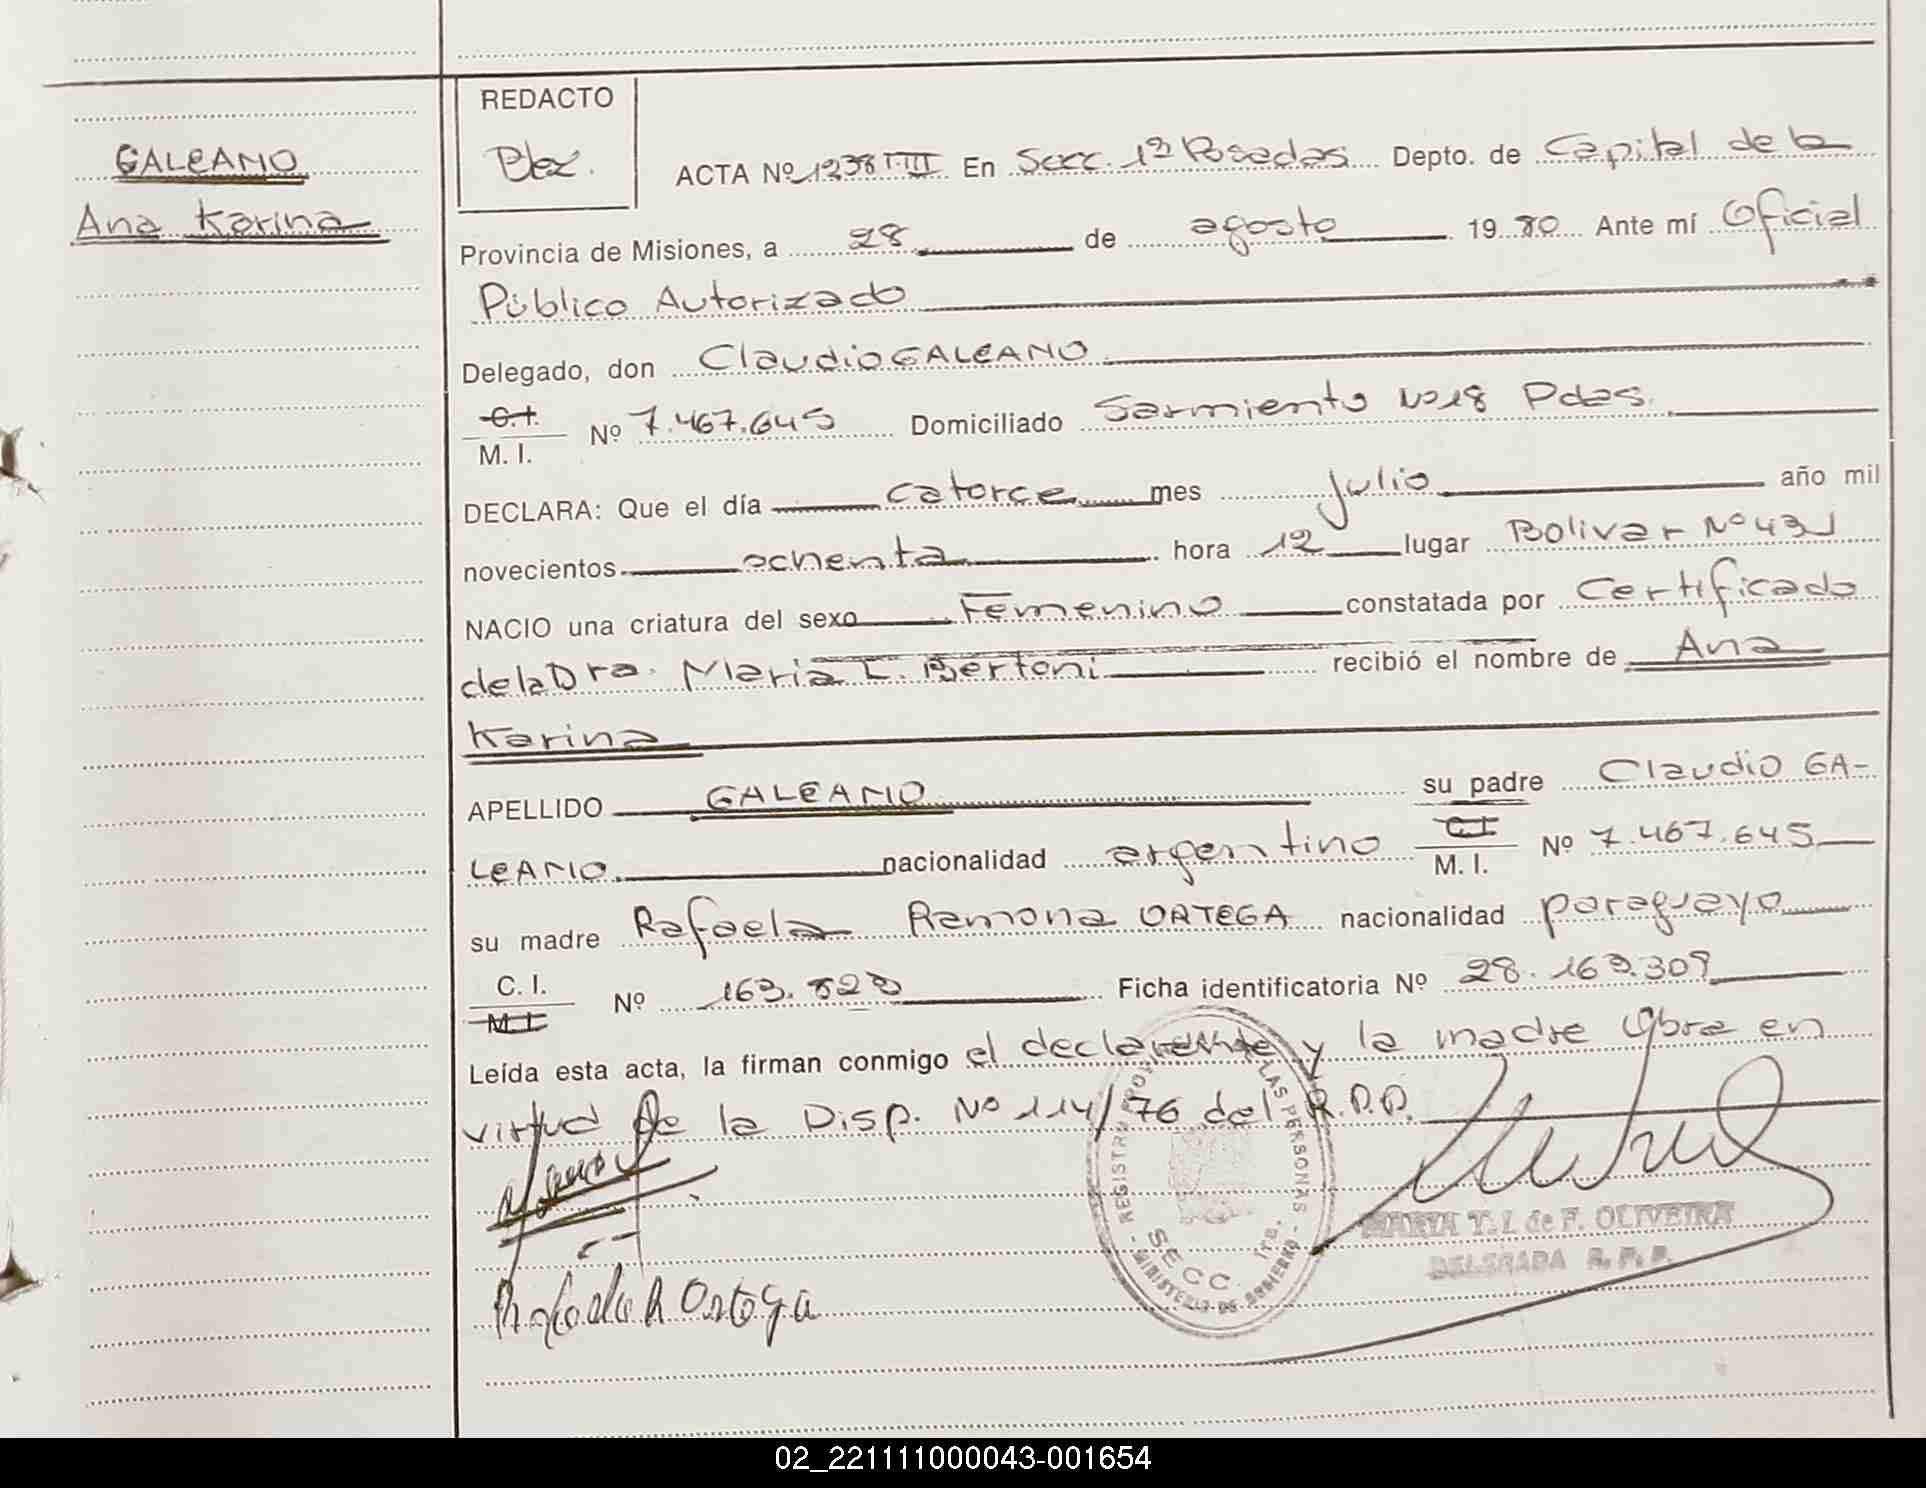 GALEANO
Ana Karina
REDACTO
ACTA Nº 1238 T III En Secc. 1ª Posadas Depto. de Capital de la
Provincia de Misiones, a 28 de agosto 1980 Ante mí Oficial
Público Autorizado
Delegado, don Claudio GALEANO
C.I.
M. I. Nº 7.467.645 Domiciliado Sarmiento Nº 18 Pdas.
DECLARA: Que el día catorce mes julio año mil
novecientos ochenta hora 12 lugar Bolivar Nº 431
NACIO una criatura del sexo Femenino constatada por Certificado
de la Dra. Maria L. Bertoni recibió el nombre de Ana
Karina
APELLIDO GALEANO su padre Claudio GA-
LEANO. nacionalidad argentino C.I. M. I. Nº 7.467.645
su madre Rafaela Ramona ORTEGA nacionalidad paraguayo
C. I.
M.I. Nº 163.823 Ficha identificatoria Nº 28.163.309
Leída esta acta, la firman conmigo el declarante y la madre Obra en
virtud de la Disp. Nº 114/76 del R.P.P.
REGISTRO PROV. LAS PERSONAS
SECC. 1ra.
MINISTERIO DE GOBIERNO
MARTA T. I. de F. OLIVEIRA
DELEGADA R. P. P.
Rafaela R Ortega
02_221111000043-001654